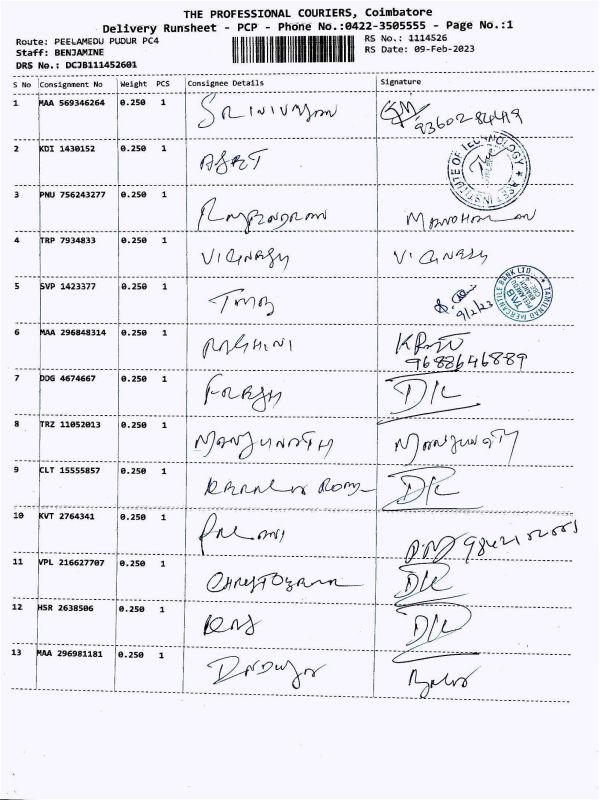 THE PROFESSIONAL COURIERS, Coimbatore
Delivery Runsheet - PCP - Phone No.:0422-3505555 - Page No.:1
Route: PEELAMEDU PUDUR PC4
Staff: BENJAMINE
DRS No.: DCJB111452601
RS No.: 1114526
RS Date: 09-Feb-2023
S No Consignment No Weight PCS Consignee Details Signature
1 MAA 569346264 0.250 1 SRINIVASAN 9360284419
2 KDI 1430152 0.250 1
INSTITUTE OF TECHNOLOGY
3 PNU 756243277 0.250 1 RAJENDRAN MANOHARAN
4 TRP 7934833 0.250 1 VIGNESH VIGNESH
5 SVP 1423377 0.250 1 TMB 9/2/23
TAMILNAD MERCANTILE BANK LTD.
6 MAA 296848314 0.250 1 RAGHINI
9688646889
7 DDG 4674667 0.250 1 D/L
8 TRZ 11052013 0.250 1 MANJUNATH MANJUNATH
9 CLT 15555857 0.250 1 D/L
10 KVT 2764341 0.250 1 PALANI
11 VPL 216627707 0.250 1 D/L
12 HSR 2638506 0.250 1 D/L
13 MAA 296981181 0.250 1